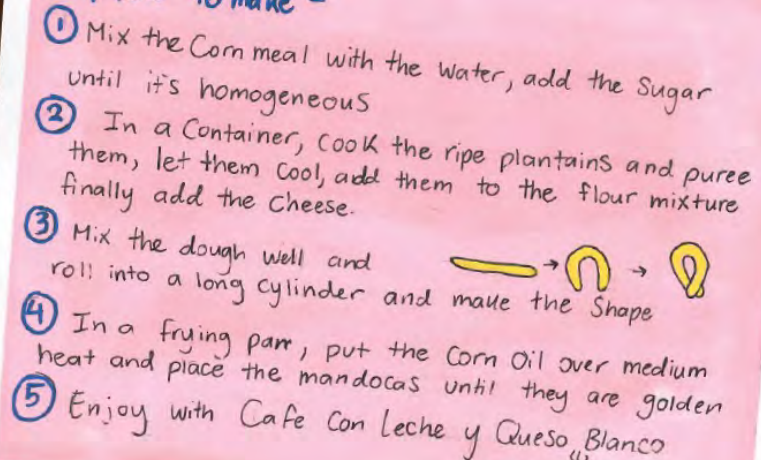 to make -
① Mix the Corn meal with the water, add the Sugar
until it's homogeneous
② In a Container, cook the ripe plantains and puree
them, let them cool, add them to the flour mixture
finally add the cheese.
③ Mix the dough well and
roll into a long cylinder and make the Shape
④ In a frying pan, put the Corn Oil over medium
heat and place the mandocas until they are golden
⑤ Enjoy with Cafe Con Leche y Queso Blanco